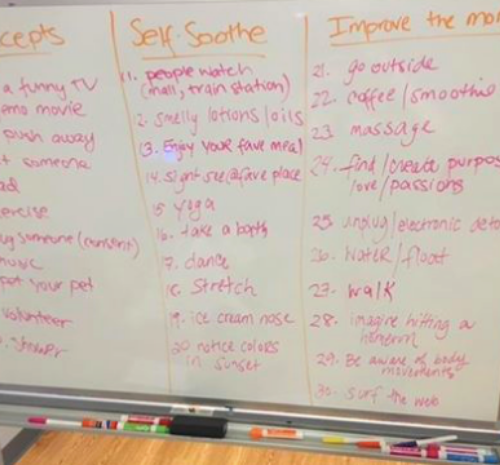 cepts
a funny TV
emo movie
push away
t someone
ad
ercise
ug someone (consent)
music
pet your pet
volunteer
. Shower
Self-Soothe
11. people watch
(mall, train station)
2. smelly lotions/oils
13. Enjoy your fave meal
14. Sight see@fave place
15 yoga
16. take a bath
17. dance
18. Stretch
19. ice cream nose
20 notice colors
in sunset
Improve the mo
21. go outside
22. coffee/smoothie
23. massage
24. find/create purpos
love/passions
25. unplug/electronic deto
26. Water/float
27. walk
28. imagine hitting a
homerun
29. Be aware of body
movements
30. surf the web